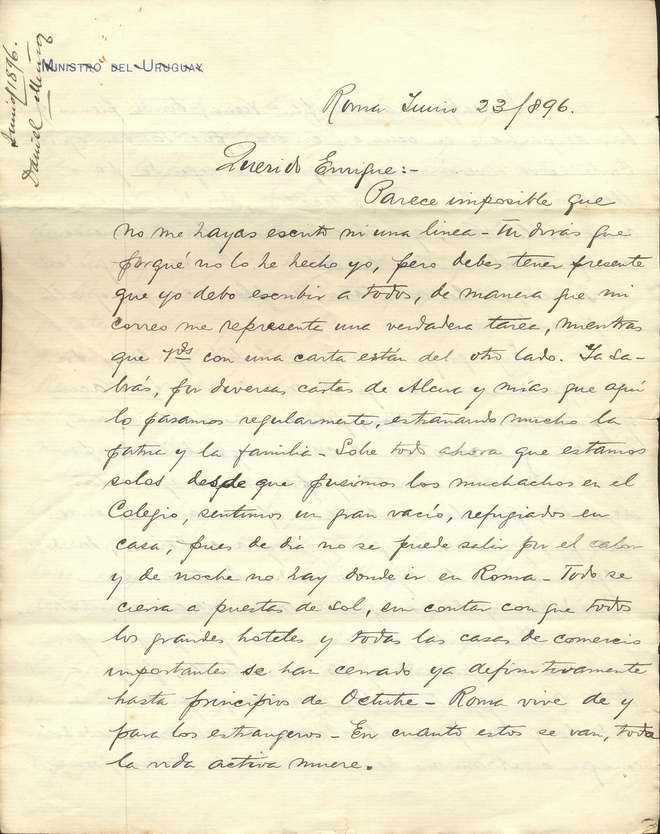 Junio/1896.
Daniel Muñoz
MINISTRO DEL URUGUAY
Roma Junio 23/896.
Querido Enrique:-
Parece imposible que
no me hayas escrito ni una linea - Tu diras que
porqué no lo he hecho yo, pero debes tener presente
que yo debo escribir a todos, de manera que mi
correo me representa una verdadera tarea, mientras
que Vds con una carta están del otro lado. Ya sa-
brás, por diversas cartas de y mías que aquí
lo pasamos regularmente, estrañando mucho la
patria y la familia - Sobre todo ahora que estamos
solos desde que pusimos los muchachos en el
Colegio, sentimos un gran vacío, refugiados en
casa, pues de dia no se puede salir por el calor
y de noche no hay donde ir en Roma - Todo se
cierra a puestas de sol, sin contar con que todos
los grandes hoteles y todas las casas de comercio
importantes se han cerrado ya definitivamente
hasta principios de Octubre - Roma vive de y
para los estrangeros - En cuanto estos se van, toda
la vida activa muere.